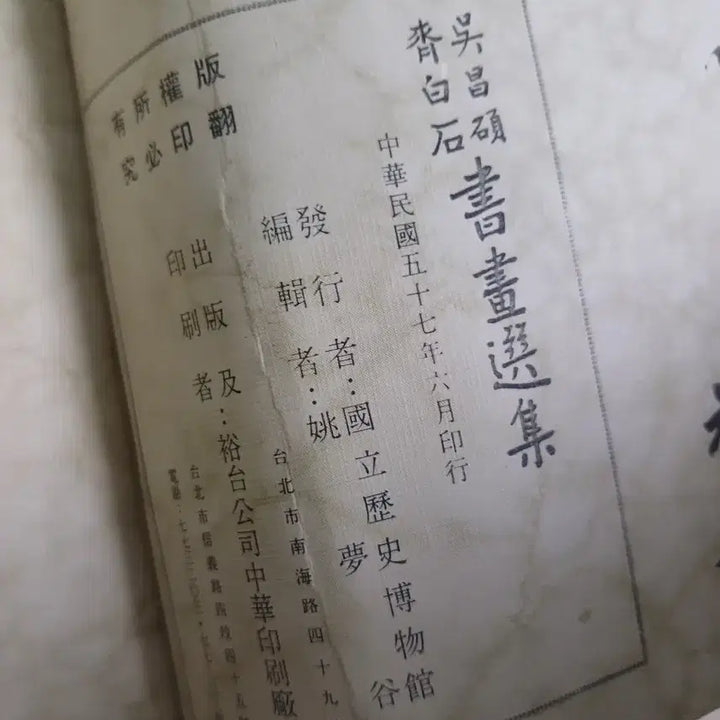 吳昌碩
齊白石
書畫選集
中華民國五十七年六月印行
發行者：國立歷史博物館
編輯者：姚夢谷
台北市南海路四十九
出版及
印刷者：裕台公司中華印刷廠
台北市信義路
電話：七七
版權所有
翻印必究